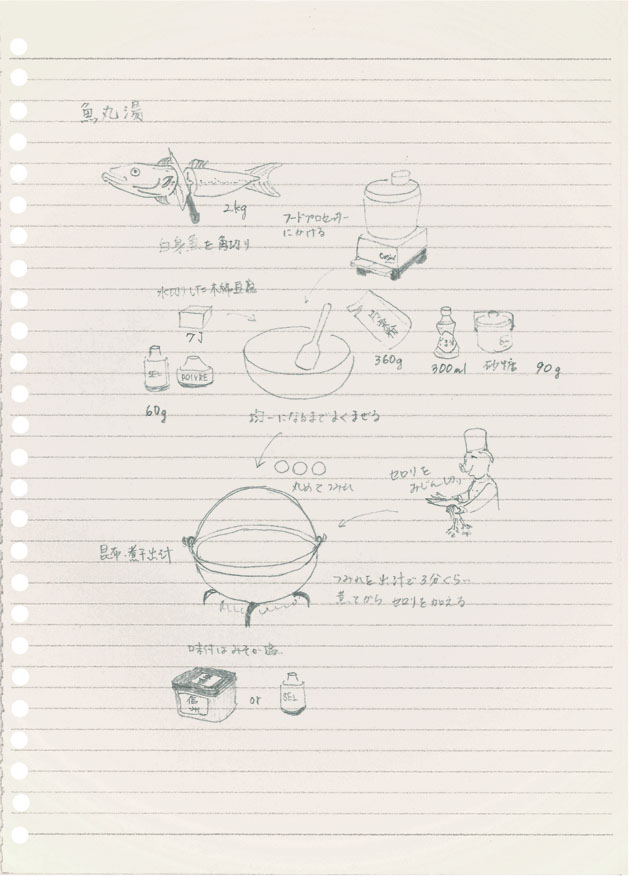 魚丸湯
2kg
白身魚を角切り
フードプロセッサー
にかける
水切りした木綿豆腐
7丁
SEL
POIVRE
60g
360g
300ml
砂糖
90g
均一になるまでよくまぜる
丸めてつみれ
セロリを
みじん切り
昆布・煮干出汁
つみれを出汁で3分くらい
煮てから セロリを加える
味付はみそか塩
信州
or
SEL